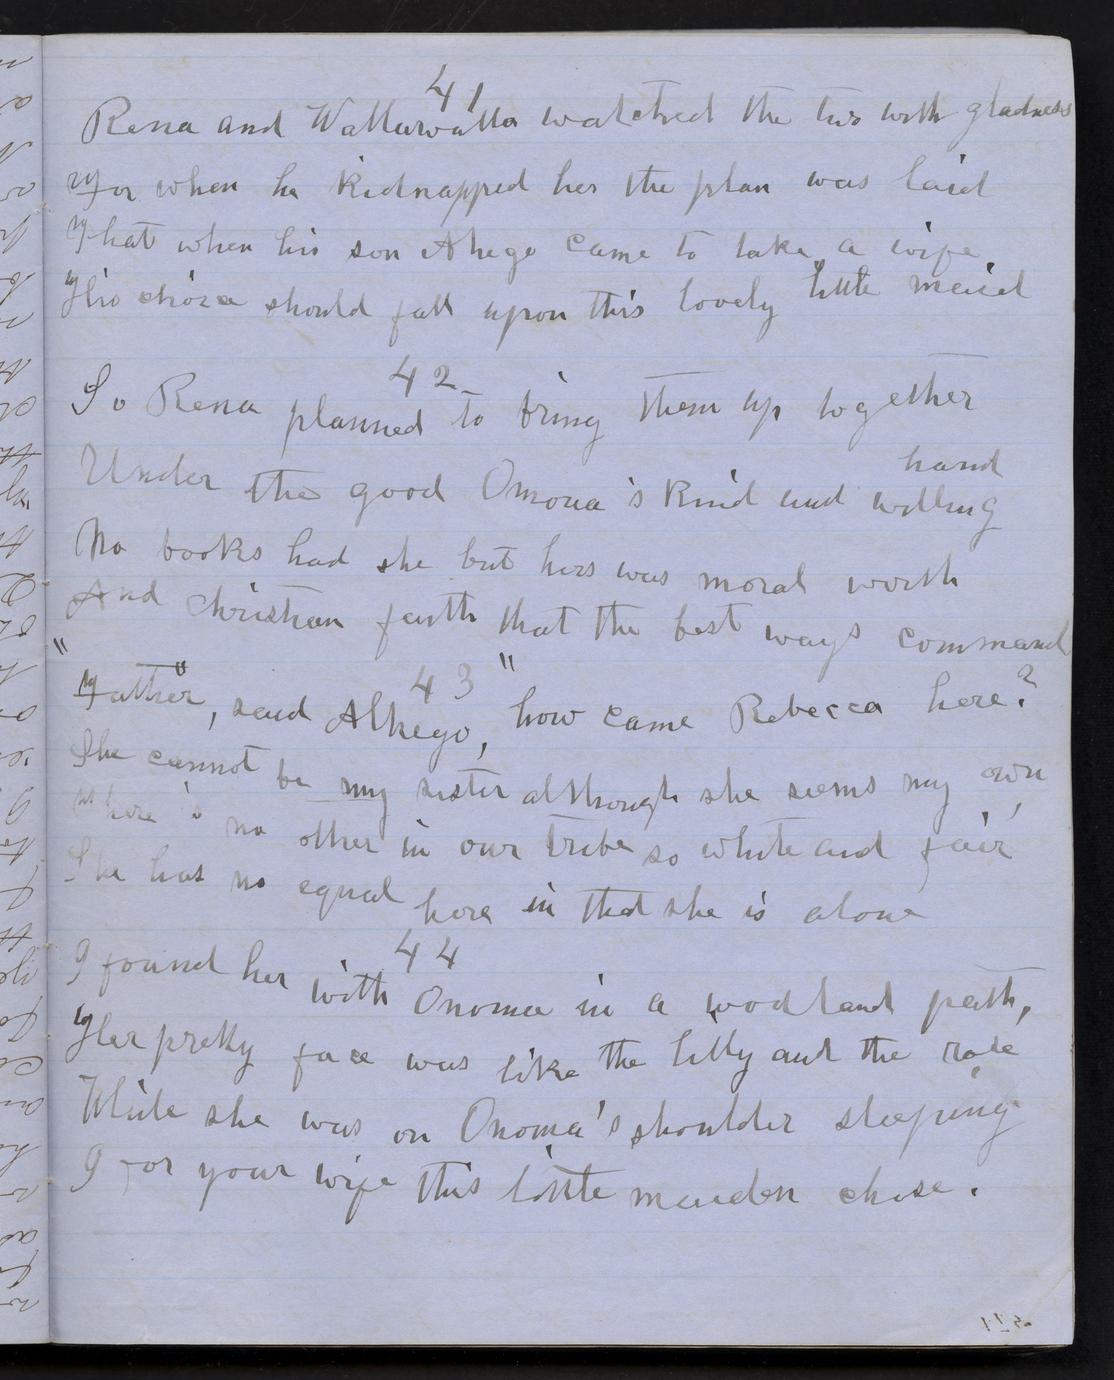 41
Rena and Wattawatta watched the two with gladness
For when he kidnapped her the plan was laid
That when his son Ahego came to take a wife,
His choice should fall upon this lovely little maid
42
So Rena planned to bring them up together
Under the good Omona's kind and willing hand
No books had she but hers was moral worth
And Christian faith that the best ways command
43
"Father", said Alhego, "how came Rebecca here?
She cannot be my sister although she seems my own,
There's no other in our tribe so white and fair
She has no equal here in that she is alone
44
I found her with Onoma in a woodland path,
Her pretty face was like the lilly and the rose
While she was on Onoma's shoulder sleeping
I for your wife this little maiden chose.